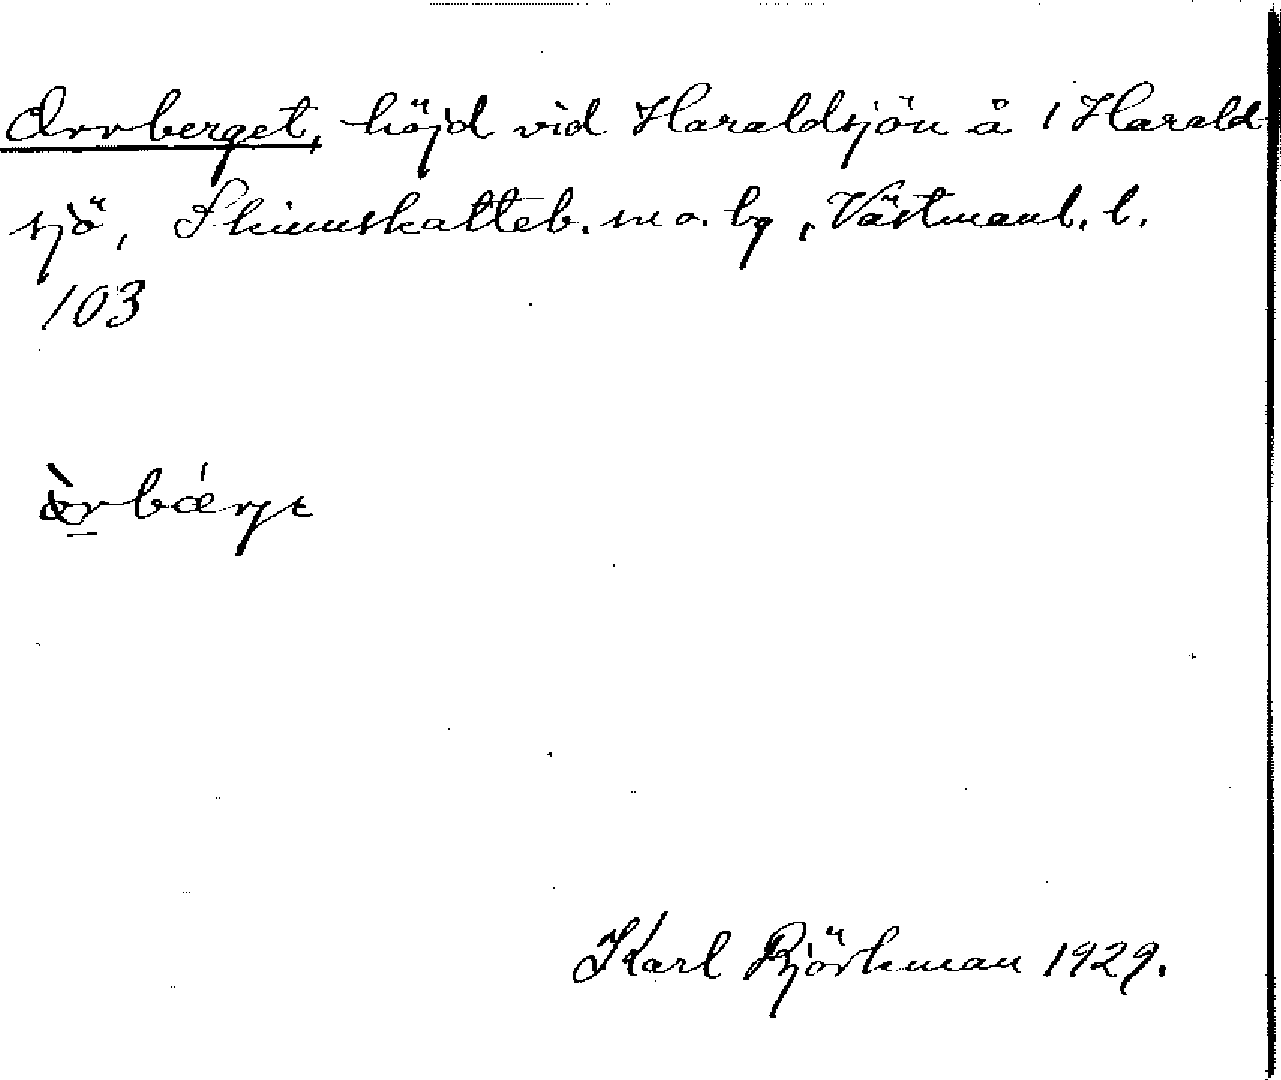 Orrberget, höjd vid Haraldsjön å 1 Harald-
sjö, Skinnskatteb. sn o. bg, Västmanl. l.
103
Karl Björkman 1929.